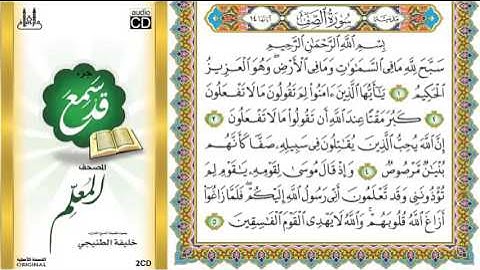 audio
CD
جزء
قد سمع
المصحف
المعلم
خليفة الطنيجي
النسخة الأصلية
ORIGINAL
2CD
مدنية سُورَةُ الصَّفِّ آياتها ١٤
بِسْمِ اللَّهِ الرَّحْمَٰنِ الرَّحِيمِ
سَبَّحَ لِلَّهِ مَا فِي السَّمَٰوَٰتِ وَمَا فِي الْأَرْضِ ۖ وَهُوَ الْعَزِيزُ
الْحَكِيمُ ١ يَٰٓأَيُّهَا الَّذِينَ ءَامَنُوا لِمَ تَقُولُونَ مَا لَا تَفْعَلُونَ
٢ كَبُرَ مَقْتًا عِندَ اللَّهِ أَن تَقُولُوا مَا لَا تَفْعَلُونَ ٣
إِنَّ اللَّهَ يُحِبُّ الَّذِينَ يُقَٰتِلُونَ فِي سَبِيلِهِ صَفًّا كَأَنَّهُم
بُنْيَٰنٌ مَّرْصُوصٌ ٤ وَإِذْ قَالَ مُوسَىٰ لِقَوْمِهِ يَٰقَوْمِ لِمَ
تُؤْذُونَنِي وَقَد تَّعْلَمُونَ أَنِّي رَسُولُ اللَّهِ إِلَيْكُمْ ۖ فَلَمَّا زَاغُوا
أَزَاغَ اللَّهُ قُلُوبَهُمْ ۚ وَاللَّهُ لَا يَهْدِي الْقَوْمَ الْفَٰسِقِينَ ٥